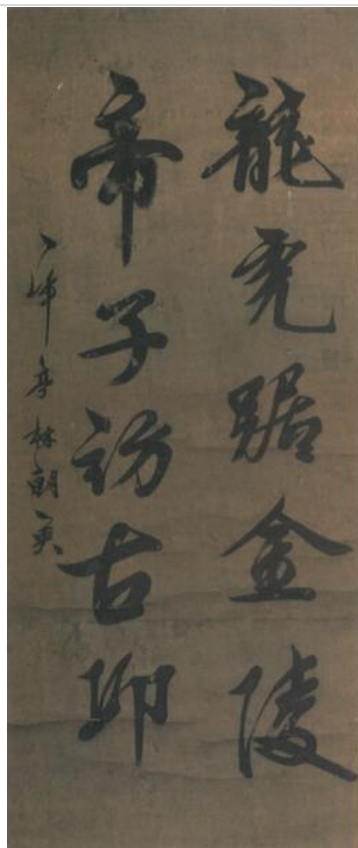 龍虎踞金陵
帝子訪古邱
一峰亭林朝英